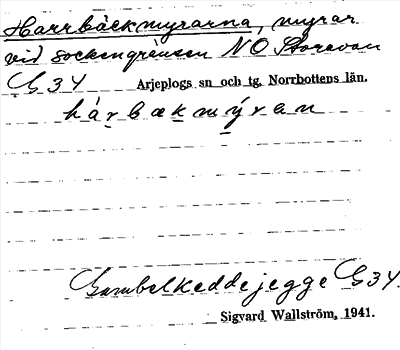 Harrbäckmyrarna, myrar
vid sockengränsen NO Storavan
G 34 Arjeplogs sn och tg. Norrbottens län.
hárbækmýran
Sambelkeddejegge G 34.
Sigvard Wallström, 1941.